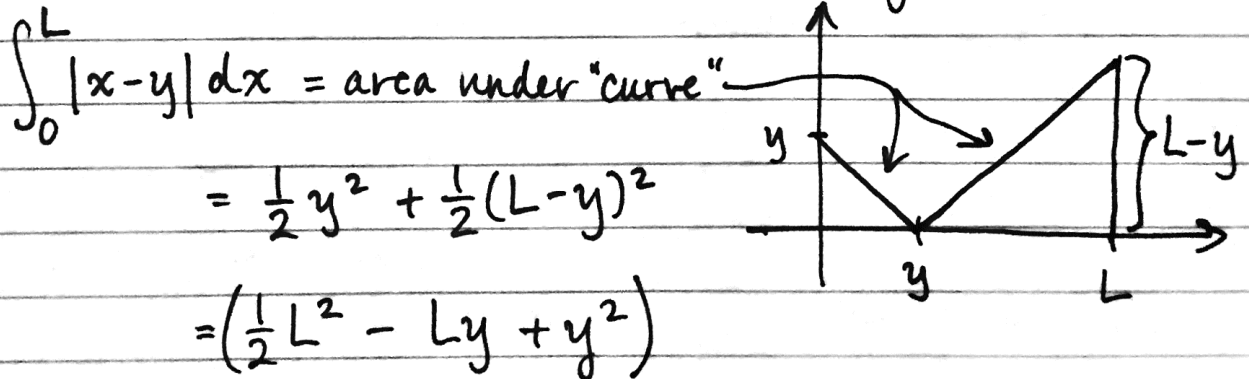 ∫₀ᴸ |x-y| dx = area under "curve"
= ½ y² + ½ (L-y)²
= (½ L² - Ly + y²)
y
L-y
y
L